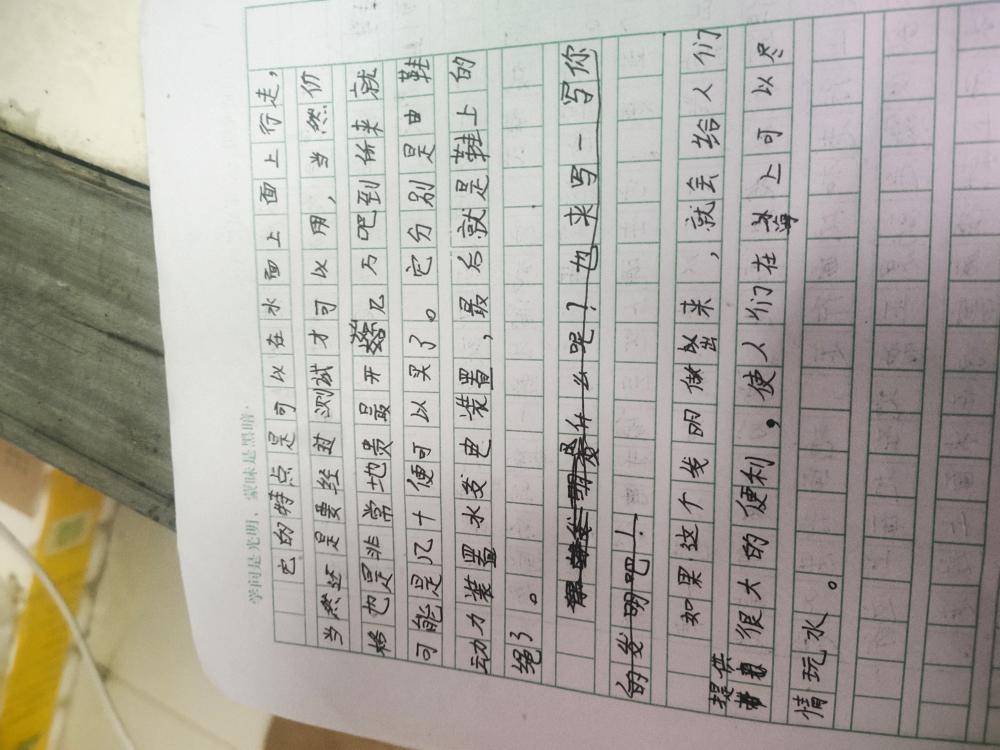 学问是光明，蒙昧是黑暗。
它的特点是可以在水面上面上行走，
当然还是要经过测试才可以用，当然价
格也是非常地贵最开几万吧到所来就
可能是几十便可以买了。它分别是由鞋
动力装置水发电装置，最后就是鞋上的
绳了。
什么呢？也来写一写你
的发明吧！
如果这个发明做出来，就会给人们
提供很大的便利，使人们在海上可以尽
情玩水。